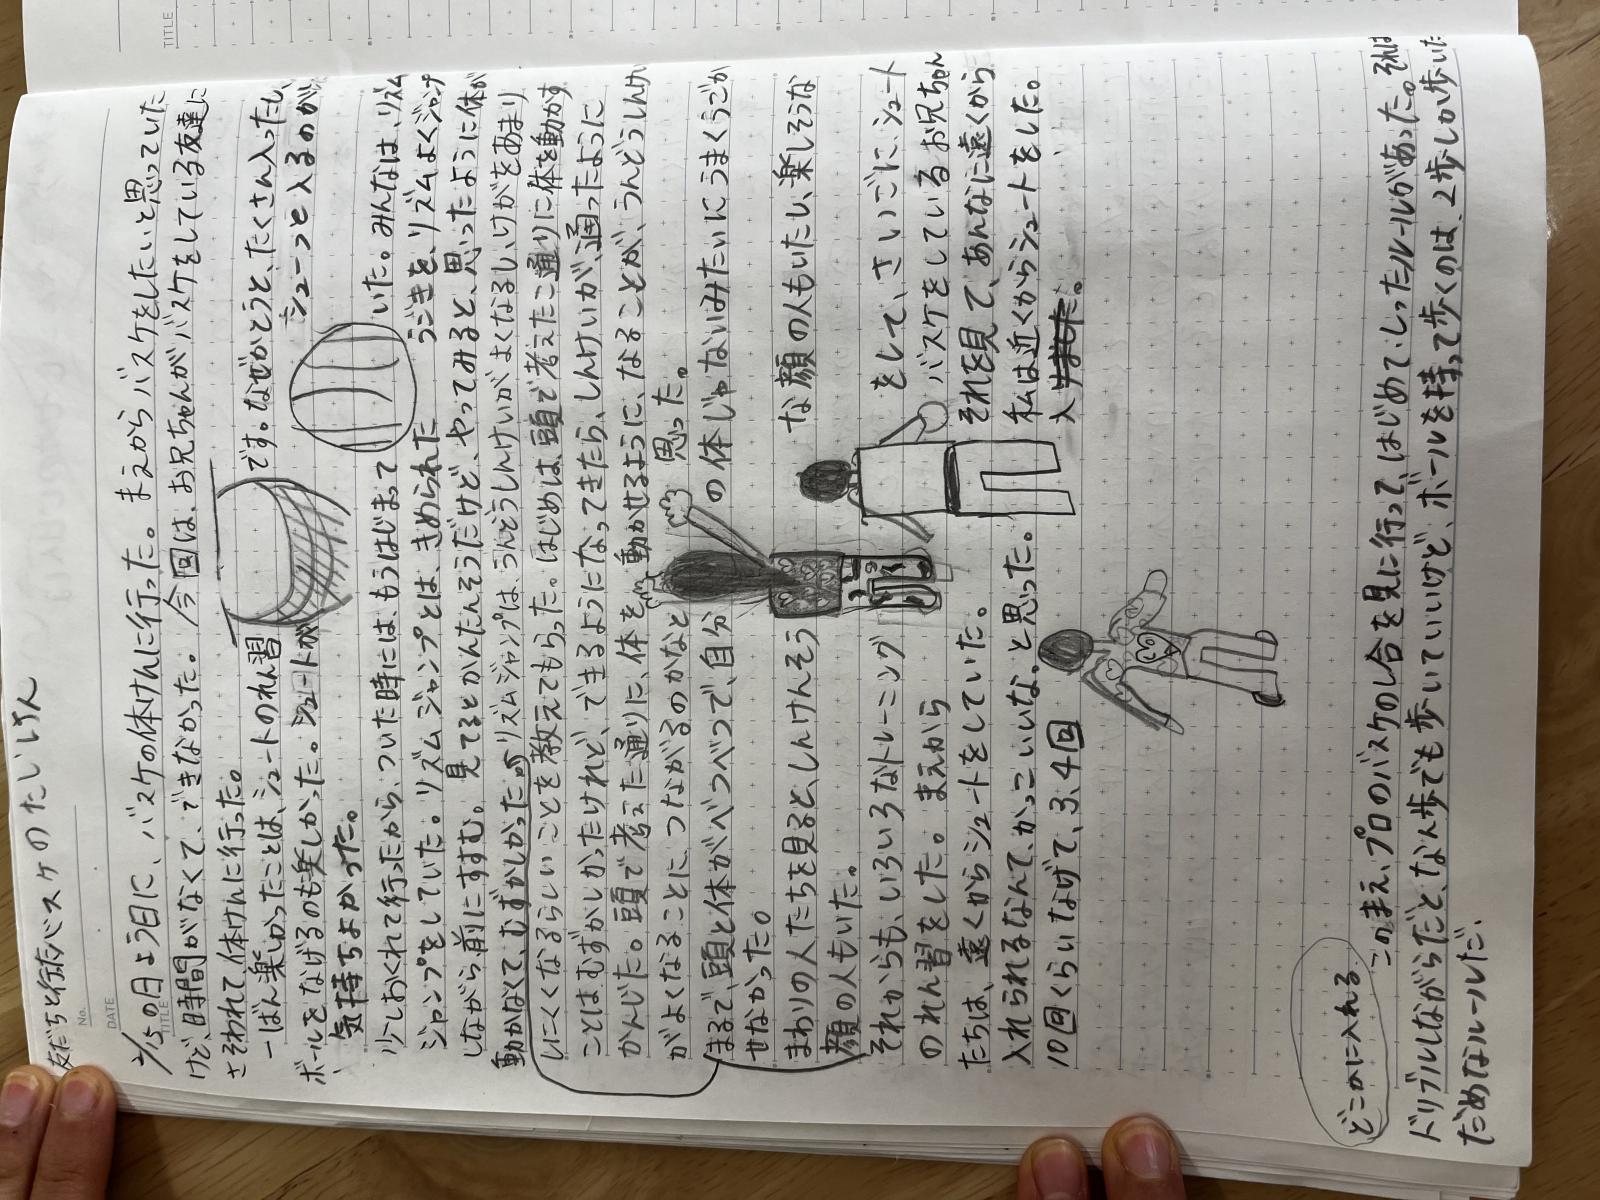 友だちと行たバスケのたいけん
No.
DATE
TITLE
2/15の日よう日に、バスケの体けんに行った。まえからバスケをしたいと思っていた
けど、時間がなくて、できなかった。今回は、お兄ちゃんがバスケをしている友達に
さそわれて体けんに行った。
一ばん楽しかったことは、シュートのれん習です。なぜかとうと、たくさん入ったし、
ボールをなげるのも楽しかった。シュートがシューっと入るのが
気持ちよかった。
少しおくれて行ったから、ついた時には、もうはじまっていた。みんなは、リズム
ジャンプをしていた。リズムジャンプとは、きめられたうごきを、リズムよくジャンプ
しながら、前にすすむ。見てるとかんたんそうだけど、やってみると、思ったように体が
動かなくて、むずかしかった。リズムジャンプは、うんどうしんけいがよくなるし、けがをあまり
しにくくなるらしいことを教えてもらった。はじめは、頭で考えたこ通りに体を動かす
ことはむずかしかったけれど、できるようになってきたら、しんけいが、通ったように
かんじた。頭で考えた通りに、体を動かせるように、なることが、うんどうしんけい
がよくなることに、つながるのかなと思った。
まるで、頭と体がべつべつで、自分の体じゃないみたいにうまくうごか
せなかった。
まわりの人たちを見ると、しんけんそうな顔の人もいたし、楽しそうな
顔の人もいた。
それからも、いろいろなトレーニングをして、さいごに、シュート
のれん習をした。まえからバスケをしているお兄ちゃん
たちは、遠くからシュートをしていた。それを見て、あんなに遠くから
入れられるなんて、かっこいいな。と思った。私は近くからシュートをした。
10回くらいなげて、3、4回入りました。
どこかに入れる
このまえ、プロのバスケのし合を見に行って、はじめて、しったルールがあった。それは
ドリブルしながらだと、なん歩でも歩いていいけど、ボールを持って歩くのは、2歩しか歩いた
だめなルールだ。
TITLE